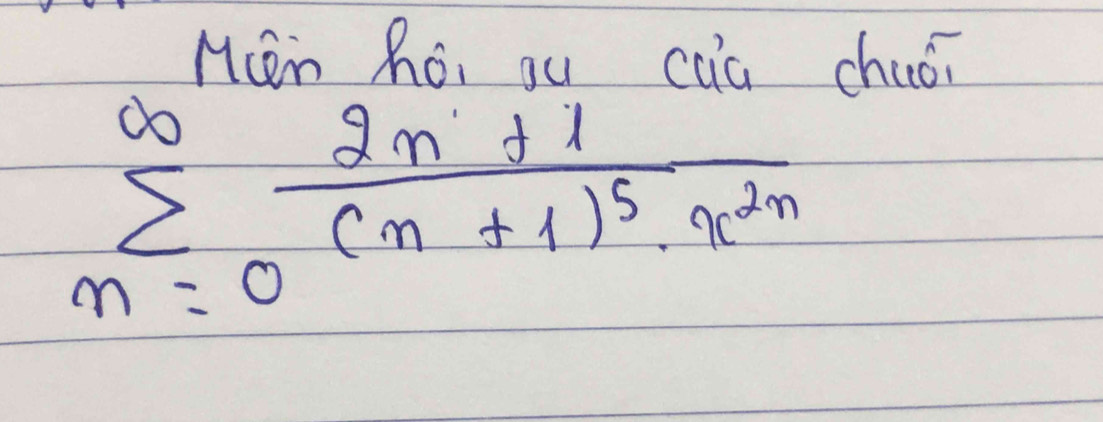 Miền hội tụ của chuỗi
∞ 2n + 1
∑ (n + 1)^5 . x^{2n}
n = 0